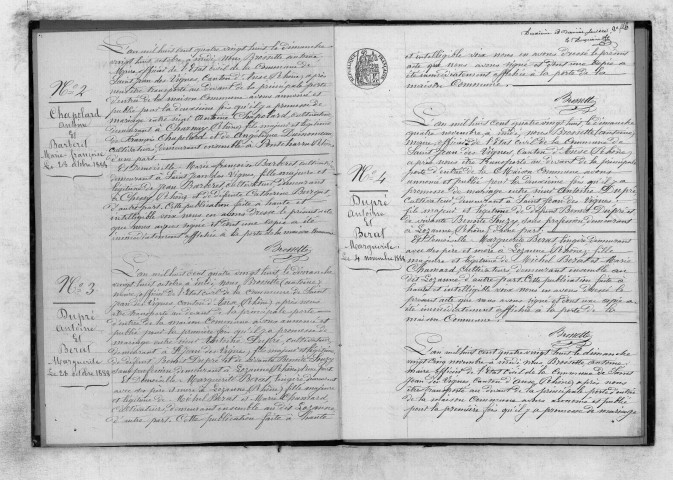 No. 2
Chapelard
Antoine
Et
Barberet
Marie françoise
Le 28 octobre 1888
L'an mil huit cent quatre vingt huit le dimanche
vingt huit octobre à midi, nous Brossette antoine
Maire officier de l'Etat Civil de la Commune de
Saint Jean des Vignes Canton d'Anse Rhône, après
nous être transporté au devant de la principale porte
d'entrée de la maison Commune avons annoncé et
publié pour la deuxième fois qu'il y a promesse de
mariage entre Antoine Chapelard, cultivateur
demeurant à Charnay Rhône, fils majeur et légitime
de François Chapelard et de Angélique
Cultivateurs demeurant ensemble à Pontcharra Rhône
d'une part.
Et Demoiselle Marie françoise Barberet
demeurant à Saint Jean des Vignes, fille majeure et
légitime de Jean Barberet cultivateur demeurant
à Chessy Rhône et de défunte Catherine
d'autre part. Cette publication faite à haute et
intelligible voix nous en avons dressé le présent acte
que nous avons signé et dont une copie a été
immédiatement affichée à la porte de la maison Commune
Brossette
No. 3
Dupré
Antoine
Et
Berat
Marguerite
Le 28 octobre 1888
L'an mil huit cent quatre vingt huit le dimanche
vingt huit octobre à midi, nous Brossette (antoine)
maire officier de l'Etat Civil de la commune de Saint
Jean des Vignes Canton d'Anse (Rhône) après nous
être transporté au devant de la principale porte
d'entrée de la maison Commune avons annoncé et
publié pour la première fois qu'il y a promesse de
mariage entre mr Antoine Dupré, cultivateur
demeurant à St Jean des Vignes, fils majeur et légitime
de défunt Benoit Dupré et de vivante Benoite
sans profession demeurant à Lozanne (Rhône) d'une part
Et Demoiselle Marguerite Berat lingère demeurant
avec ses père et mère à Lozanne (Rhône), fille majeure
et légitime de Michel Berat et Marie Chavard,
Cultivateurs, demeurant ensemble au dit Lozanne
d'autre part. Cette publication faite à haute
et intelligible voix nous en avons dressé le présent
acte que nous avons signé et dont une copie a
été immédiatement affichée à la porte de la
maison Commune.
Brossette
No. 4
Dupré
Antoine
Et
Berat
Marguerite
Le 4 novembre 1888
L'an mil huit cent quatre vingt huit le dimanche
quatre novembre à midi, nous Brossette (antoine)
maire officier de l'Etat Civil de la Commune de
Saint Jean des Vignes, Canton d'Anse (Rhône)
après nous être transporté au devant de la principale
porte d'entrée de la Maison Commune avons
annoncé et publié pour la deuxième fois qu'il y a
promesse de mariage entre mr Antoine Dupré
Cultivateur demeurant à Saint Jean des Vignes
fils majeur et légitime de défunt Benoit Dupré et
de vivante Benoite sans profession demeurant
à Lozanne (Rhône) d'une part.
Et Demoiselle Marguerite Berat lingère demeurant
avec ses père et mère à Lozanne (Rhône), fille
majeure et légitime de Michel Berat et Marie
Chavard Cultivateurs demeurant ensemble au
dit Lozanne d'autre part. Cette publication faite à
haute et intelligible voix nous en avons dressé le
présent acte que nous avons signé et dont une copie a
été immédiatement affichée à la porte de la
maison Commune.
Brossette
L'an mil huit cent quatre vingt huit le dimanche
vingt cinq novembre à midi, nous Brossette antoine
maire officier de l'Etat Civil de la commune de Saint
Jean des Vignes Canton d'Anse (Rhône) après nous
être transporté au devant de la principale porte d'entrée
de la maison Commune avons annoncé et publié
pour la première fois qu'il y a promesse de mariage